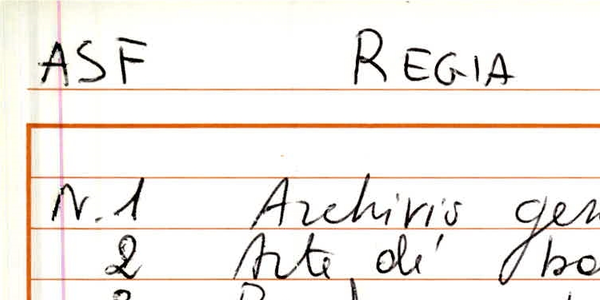 ASF REGIA
N. 1 Archivio gen
2 Arte dé bo